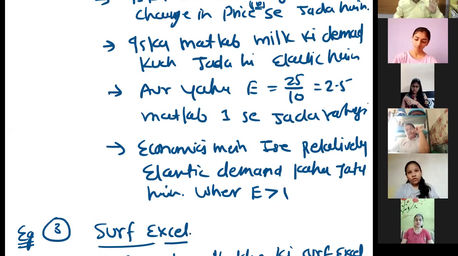 change in Price se Jada hain.
→ Iska matlab milk ki demand
kuch Jada hi Elastic hain
→ Aur yaha E = 25/10 = 2.5
matlab 1 se Jada
→ Economics main Ise Relatively
Elastic demand kaha jata
hain. Wher E > 1
Eg ③ Surf Excel.
ki surf Excel